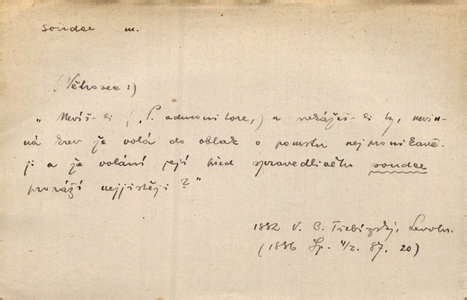 soudce m.
(Větrovec:)
"Nevíš-li („P. admonitore,) a nekážeš-li ty, nevin-
ná krev že volá do oblak o pomstu nejpronikavě-
ji a že volání její před spravedlivého soudce
proráží nejjistěji?"
1882 V. B. Třebízský, Levoh.
(1886 Sp. 4/2. 87, 20)